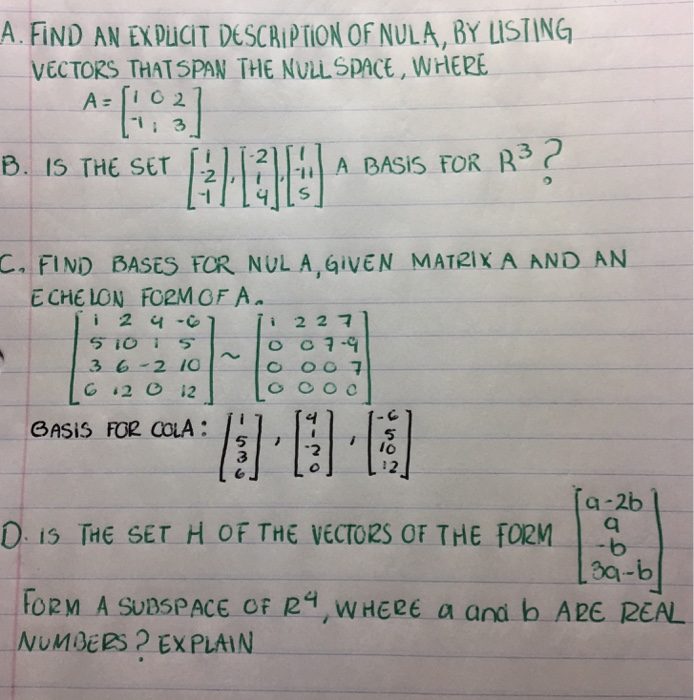 A. FIND AN EXPLICIT DESCRIPTION OF NUL A, BY LISTING
VECTORS THAT SPAN THE NULL SPACE, WHERE
A = [1 0 2
-1 1 3]
B. IS THE SET [1 -2 -1], [-2 1 4], [1 -11 5] A BASIS FOR R³?
C. FIND BASES FOR NUL A, GIVEN MATRIX A AND AN
ECHELON FORM OF A.
[1 2 4 -6] [1 2 2 7]
[5 10 1 5] ~ [0 0 7 -9]
[3 6 -2 10] [0 0 0 7]
[6 12 0 12] [0 0 0 0]
BASIS FOR COL A: [1 5 3 6], [4 1 -2 0], [-6 5 10 12]
D. IS THE SET H OF THE VECTORS OF THE FORM [a-2b a -b 3a-b]
FORM A SUBSPACE OF R4, WHERE a and b ARE REAL
NUMBERS? EXPLAIN